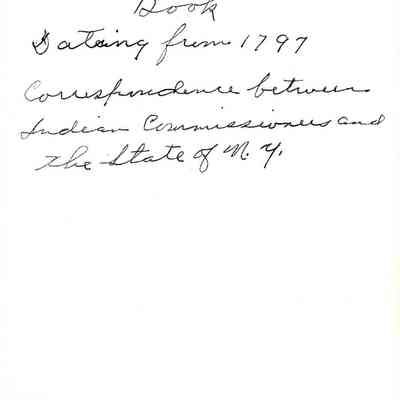 Book
Dating from 1797
Correspondence between
Indian Commissioners and
the State of N. Y.